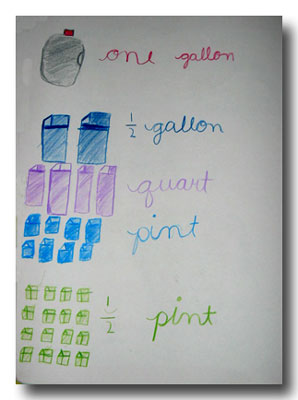 one gallon
½ gallon
quart
pint
½ pint